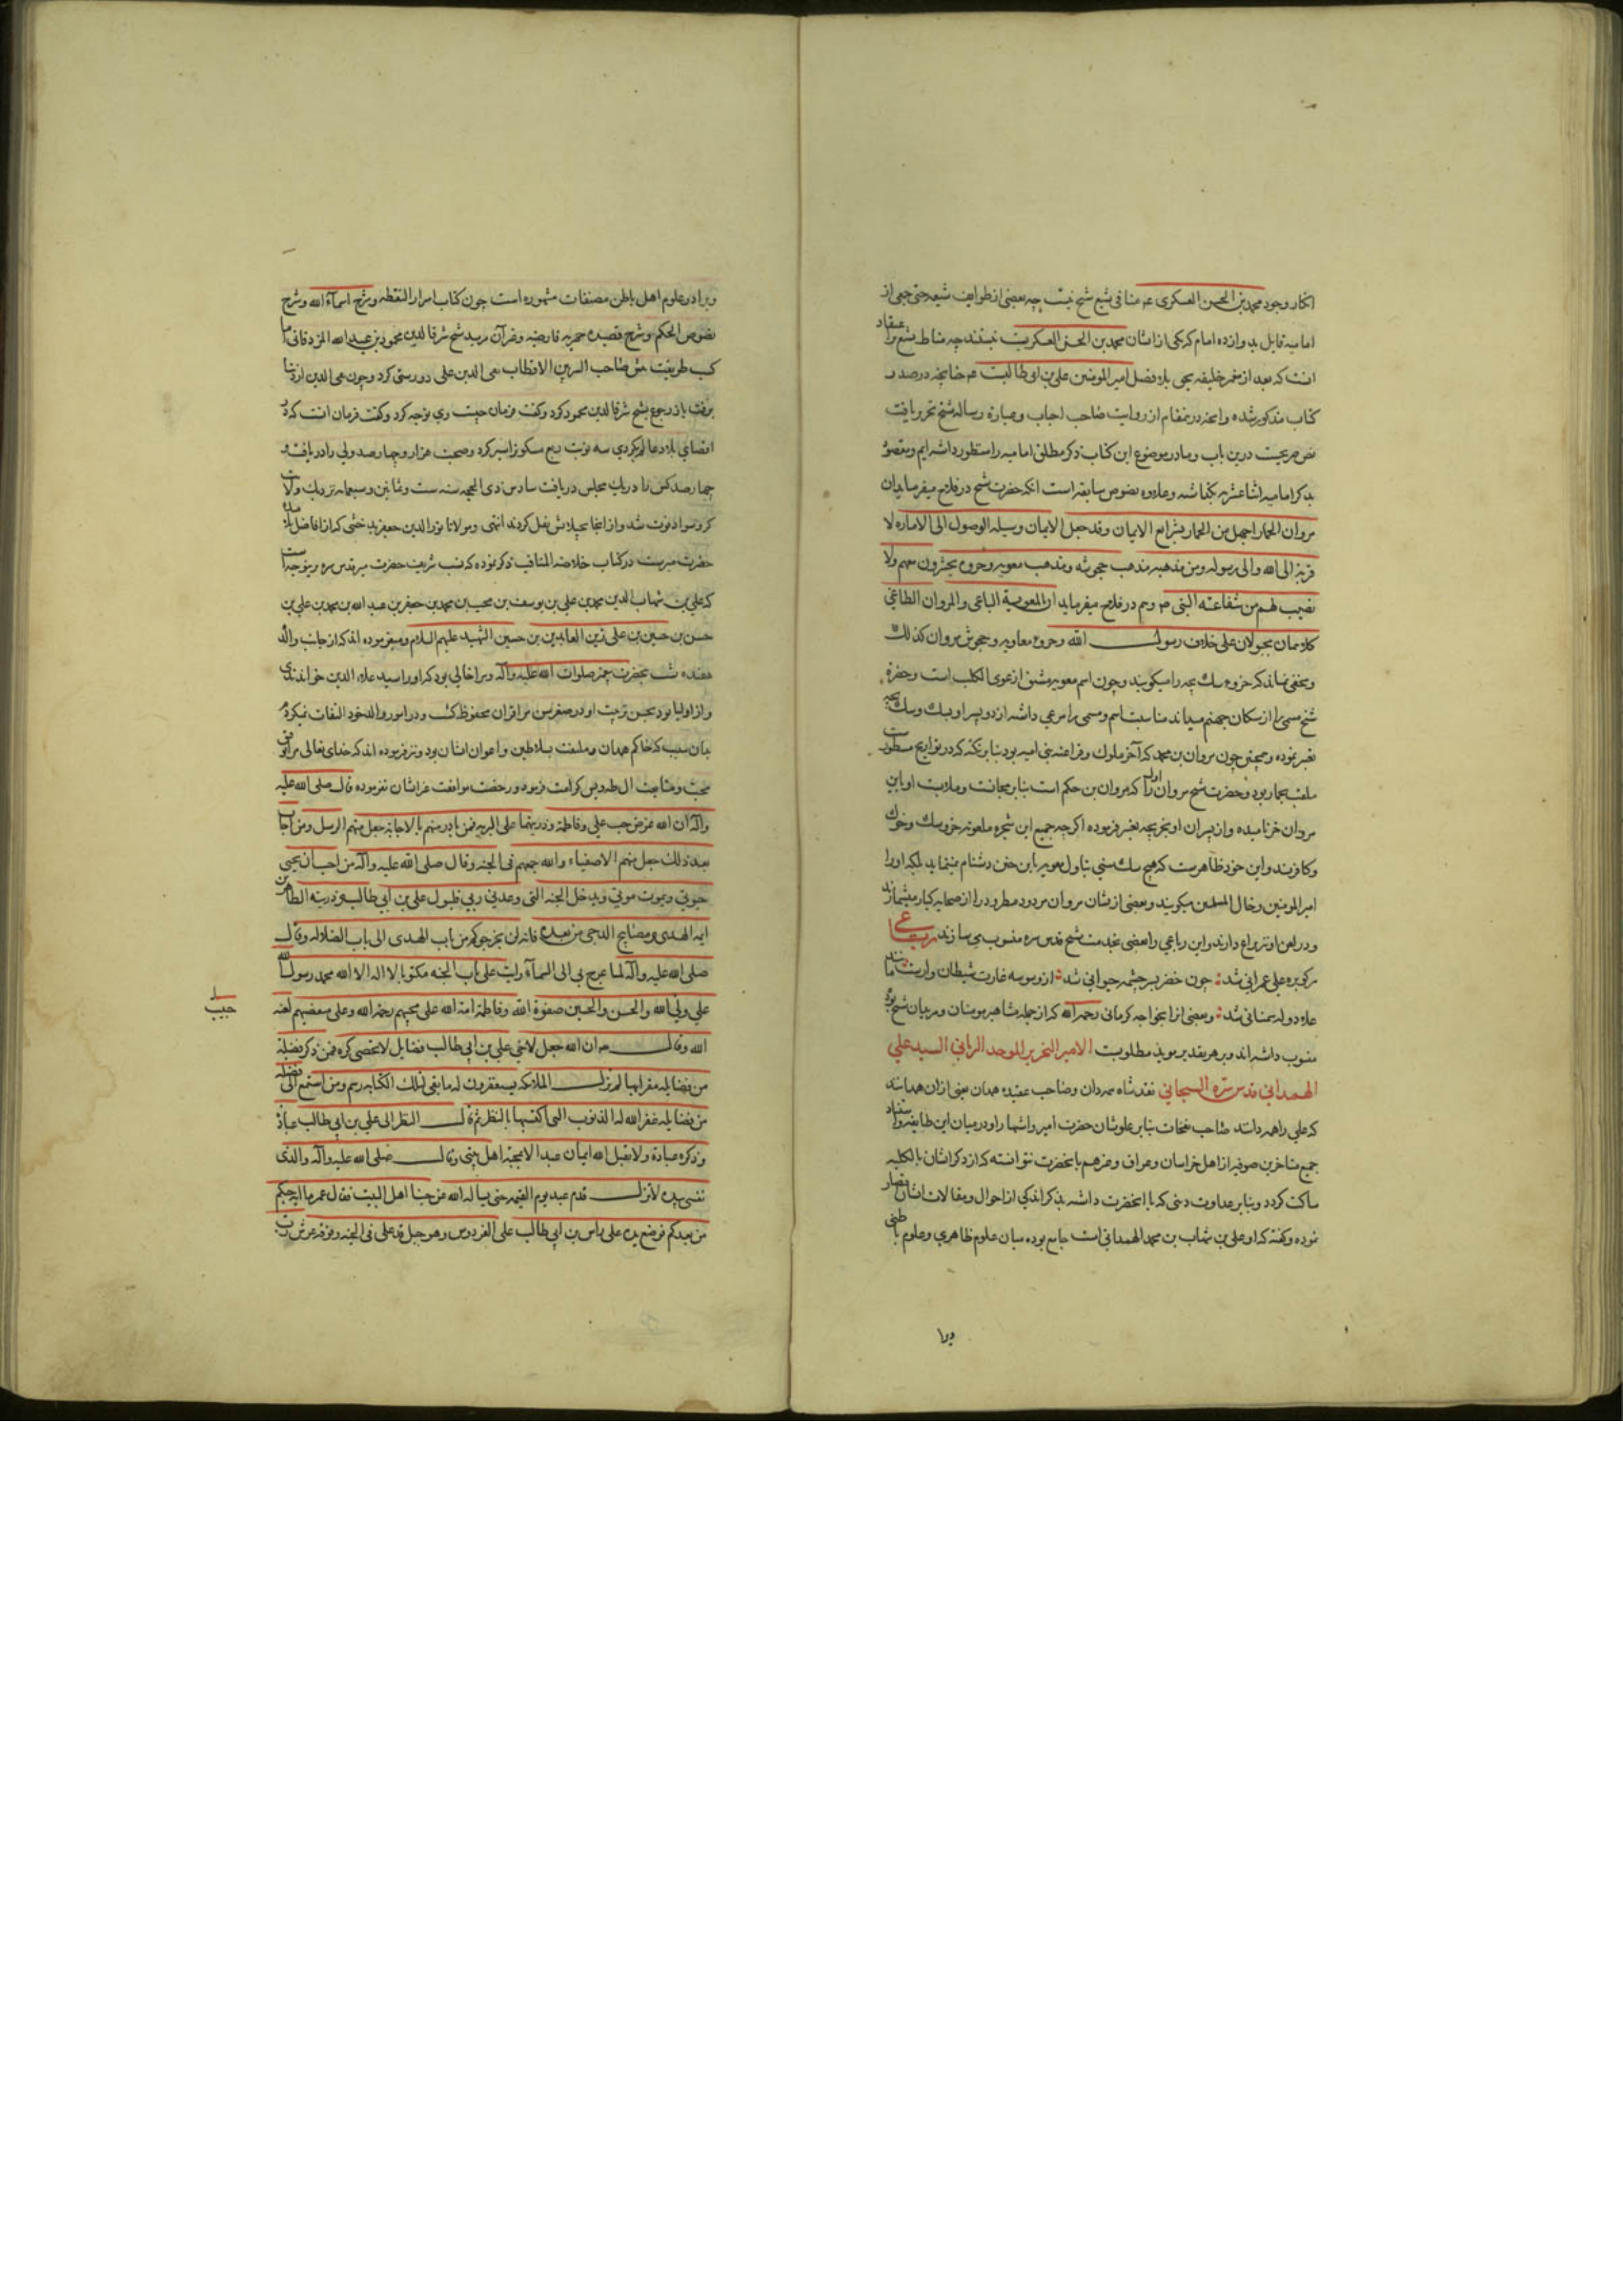 انکار وجود محمد بن الحسن العسکری عم منافی تشیع شیخ نیست چه بعضی از طوایف شیعه حتی جمعی از
امامیه قایل بدوازده امام که یکی از ایشان محمد بن الحسن العسکریست نیستند چه مناط تشیع بر اعتقاد
انست که بعد از پیغمبر خلیفه بحق بلا فصل امیر المومنین علی بن ابی طالبست عم چنانچه در صدر
کتاب مذکور شده و انچه درینمقام از روایت صاحب احباب و عبارة رساله شیخ تحریر یافت
نص صریحست درین باب و ما در موضوع این کتاب ذکر مطلق امامیه را منظور داشته‌ایم و مقصود
بذکر امامیه اثنا عشریه نگذاشته و علاوه نصوص سابقه است انکه حضرت شیخ در فلاح میفرماید ان
مروان الحمار اجهل من الحمار بشرایع الایمان وقد جعل الایمان وسیله الوصول الی الاماره لا
قربة الی الله والی رسوله ومن مذهبه مذهب ومذهب معویه وجروه یحشرون معهم ولا
نصیب لهم من شفاعته النبی ص و هم در فلاح میفرماید ان المعویة الباغی والمروان الطاغی
کلاهمان یجولان علی خلاف رسول الله وجروه معاویه مروان کذلک
و مخفی نماند که جروه سک بچه را میکویند و چون اسم معویه مشتق از عوی الکلب است و حضرة
شیخ مسمی را از سکان جهنم میداند مناسبت اسم و مسمی را مرعی داشته از دو پسر او بسک و سک بچه
تعبیر نموده و همچنین چون مروان بن محمد که آخر ملوک و فراعنه بنی امیه بود بنابر نکته که در تواریخ مسطورست
ملقب بحمار بود و حضرت شیخ مروان اول را که مروان بن حکم است بنابر مجانست و ملابست او باین
مروان خر نامیده و از پسران او بخر بچه تعبیر فرموده اکرچه جمیع این شجره ملعونه خر و سک و خوک
و کافرند و این خود ظاهرست که هیچ سک سنی تناول معویه باین دشنام نمینماید بلکه او را
امیر المومنین و خال المسلمین میکویند و بعضی از ایشان مروان مردود مطرود را از صحابه کبار میشمارند
و در لعن او نزاع دارند و این رباعی را بعضی بخدمت شیخ قدس سره منسوب می سازند رباعی
هر کو بره علی عمرانی شد چون خضر بسر چشمه حیوانی شد از وسوسه غارت شیطان وارست مانند
علاء دوله سمنانی شد و بعضی انرا بخواجه کرمانی رحمه الله که از جمله مشاهیر مومنان و مریدان شیخ بود
منسوب داشته‌اند و بر هر تقدیر موید مطلوبست الامیر النحریر الموحد الربانی السید علی
الهمدانی قدس سره السبحانی نقد شاه مردان و صاحب عقیده همدان یعنی از ان همدانند
که علی را همه دانند صاحب نفحات بنابر علو شان حضرت امیر و اشتهار او در میان این طایفه و اعتقاد
جمیع متاخرین صوفیه از اهل خراسان و عراق و غیرهم بانحضرت نتوانسته که از ذکر ایشان بالکلیه
ساکت کردد و بنابر عداوت دینی که با انحضرت داشته بذکر اندکی از احوال و مقالات ایشان اقتصار
نموده و کفته که او علی بن شهاب بن محمد الهمدانی است جامع بوده میان علوم ظاهری و علوم باطنی
ویرا
ویرا در علوم اهل باطن مصنفات مشهوره است چون کتاب اسرار النقطه و شرح اسماء الله و شرح
فصوص الحکم و شرح قصیده خمریه فارضیه و غیر آن مرید شیخ شرف الدین محمود بن عبد الله المزدقانی اما
کسب طریقت پیش صاحب السر بین الاقطاب تقی الدین علی دوستی کرد و چون تقی الدین از دنیا
برفت باز رجوع بشیخ شرف الدین محمود کرد و کفت فرمان چیست وی توجه کرد و کفت فرمان انست که در
اقصای بلاد عالم بکردی سه نوبت ربع مسکون را سیر کرد و صحبت هزار و چهار صد ولی را دریافت و
چهار صد کس را در یک مجلس دریافت سادس ذی الحجه سنه ست و ثمانین و سبعمایه نزدیک ولایت
کبر و سواد فوت شد و از انجا بختلانش نقل کردند انتهی و مولانا نور الدین جعفر بدخشی که از افاضل تلامذه
حضرت میر است در کتاب خلاصة المناقب ذکر نموده که نسب شریف حضرت میر قدس سره
که علی بن شهاب الدین بن محمد بن علی بن یوسف بن محب بن محمد بن جعفر بن عبد الله بن محمد بن علی بن
حسن بن حسین بن علی زین العابدین بن حسین الشهید علیهم السلام و میفرموده‌اند که از جانب والده
هفده نسب بحضرت پیغمبر صلوات الله علیه واله و مرا خالی بود که او را سید علاء الدین خواندندی
و از اولیا بود بحسن تربیت او در صغر سن مرا قران محفوظ کشت و در امور والد خود التفات نمیکردم
بدان سبب که حاکم همدان و ملتفت بسلاطین و اعوان ایشان بود و نیز فرموده‌اند که خدای تعالی مرا توفیق
محبت و متابعت ال طه و یس کرامت فرمود و رخصت موافقت غیر ایشان نفرموده قال صلی الله علیه
واله ان الله عرض حب علی وفاطمة وذریتهما علی البریه فمن بادر منهم بالاجابة جعل منهم الرسل ومن اجاب
بعد ذلک جعل منهم الاصفیاء والله جمعهم فی الجنه وقال صلی الله علیه واله من احب ان یحیی
حیوتی ویموت موتی ویدخل الجنه التی وعدنی ربی فلیتول علی بن ابی طالب وذریته الطاهرین
ایمه الهدی ومصابیح الدجی من بعده فانه لن یخرجوکم من باب الهدی الی باب الضلاله وقال
صلی الله علیه واله لما عرج بی الی السماء رایت علی باب الجنه مکتوبا لا اله الا الله محمد رسول الله
علی ولی الله والحسن والحسین صفوة الله وفاطمة امة الله علی محبیهم رحمة الله وعلی مبغضیهم لعنه
حبیب
الله وقال ان الله جعل لاخی علی بن ابی طالب فضایل لا تحصی کثرة فمن ذکر فضیلة
من فضایله مقرا بها لم تزل الملائکه یستغفرون له ما بقی لتلک الکتابه رسم ومن استمع الی فضیلة
من فضایله غفر الله له الذنوب التی اکتسبها بالنظر ثم قال النظر الی علی بن ابی طالب عبادة
وذکره عبادة ولا یقبل الله ایمان عبد الا بمحبة اهل بیتی وقال صلی الله علیه واله والذی
نفسی بیده لا تزل قدم عبد یوم القیمه حتی یساله الله عن حبنا اهل البیت فقال عمر ما آیة حبکم
من بعدکم فوضع یده علی راس بن ابی طالب علی الفردوس وهو جبل قد علی فی الجنه وفوقه عرش رب